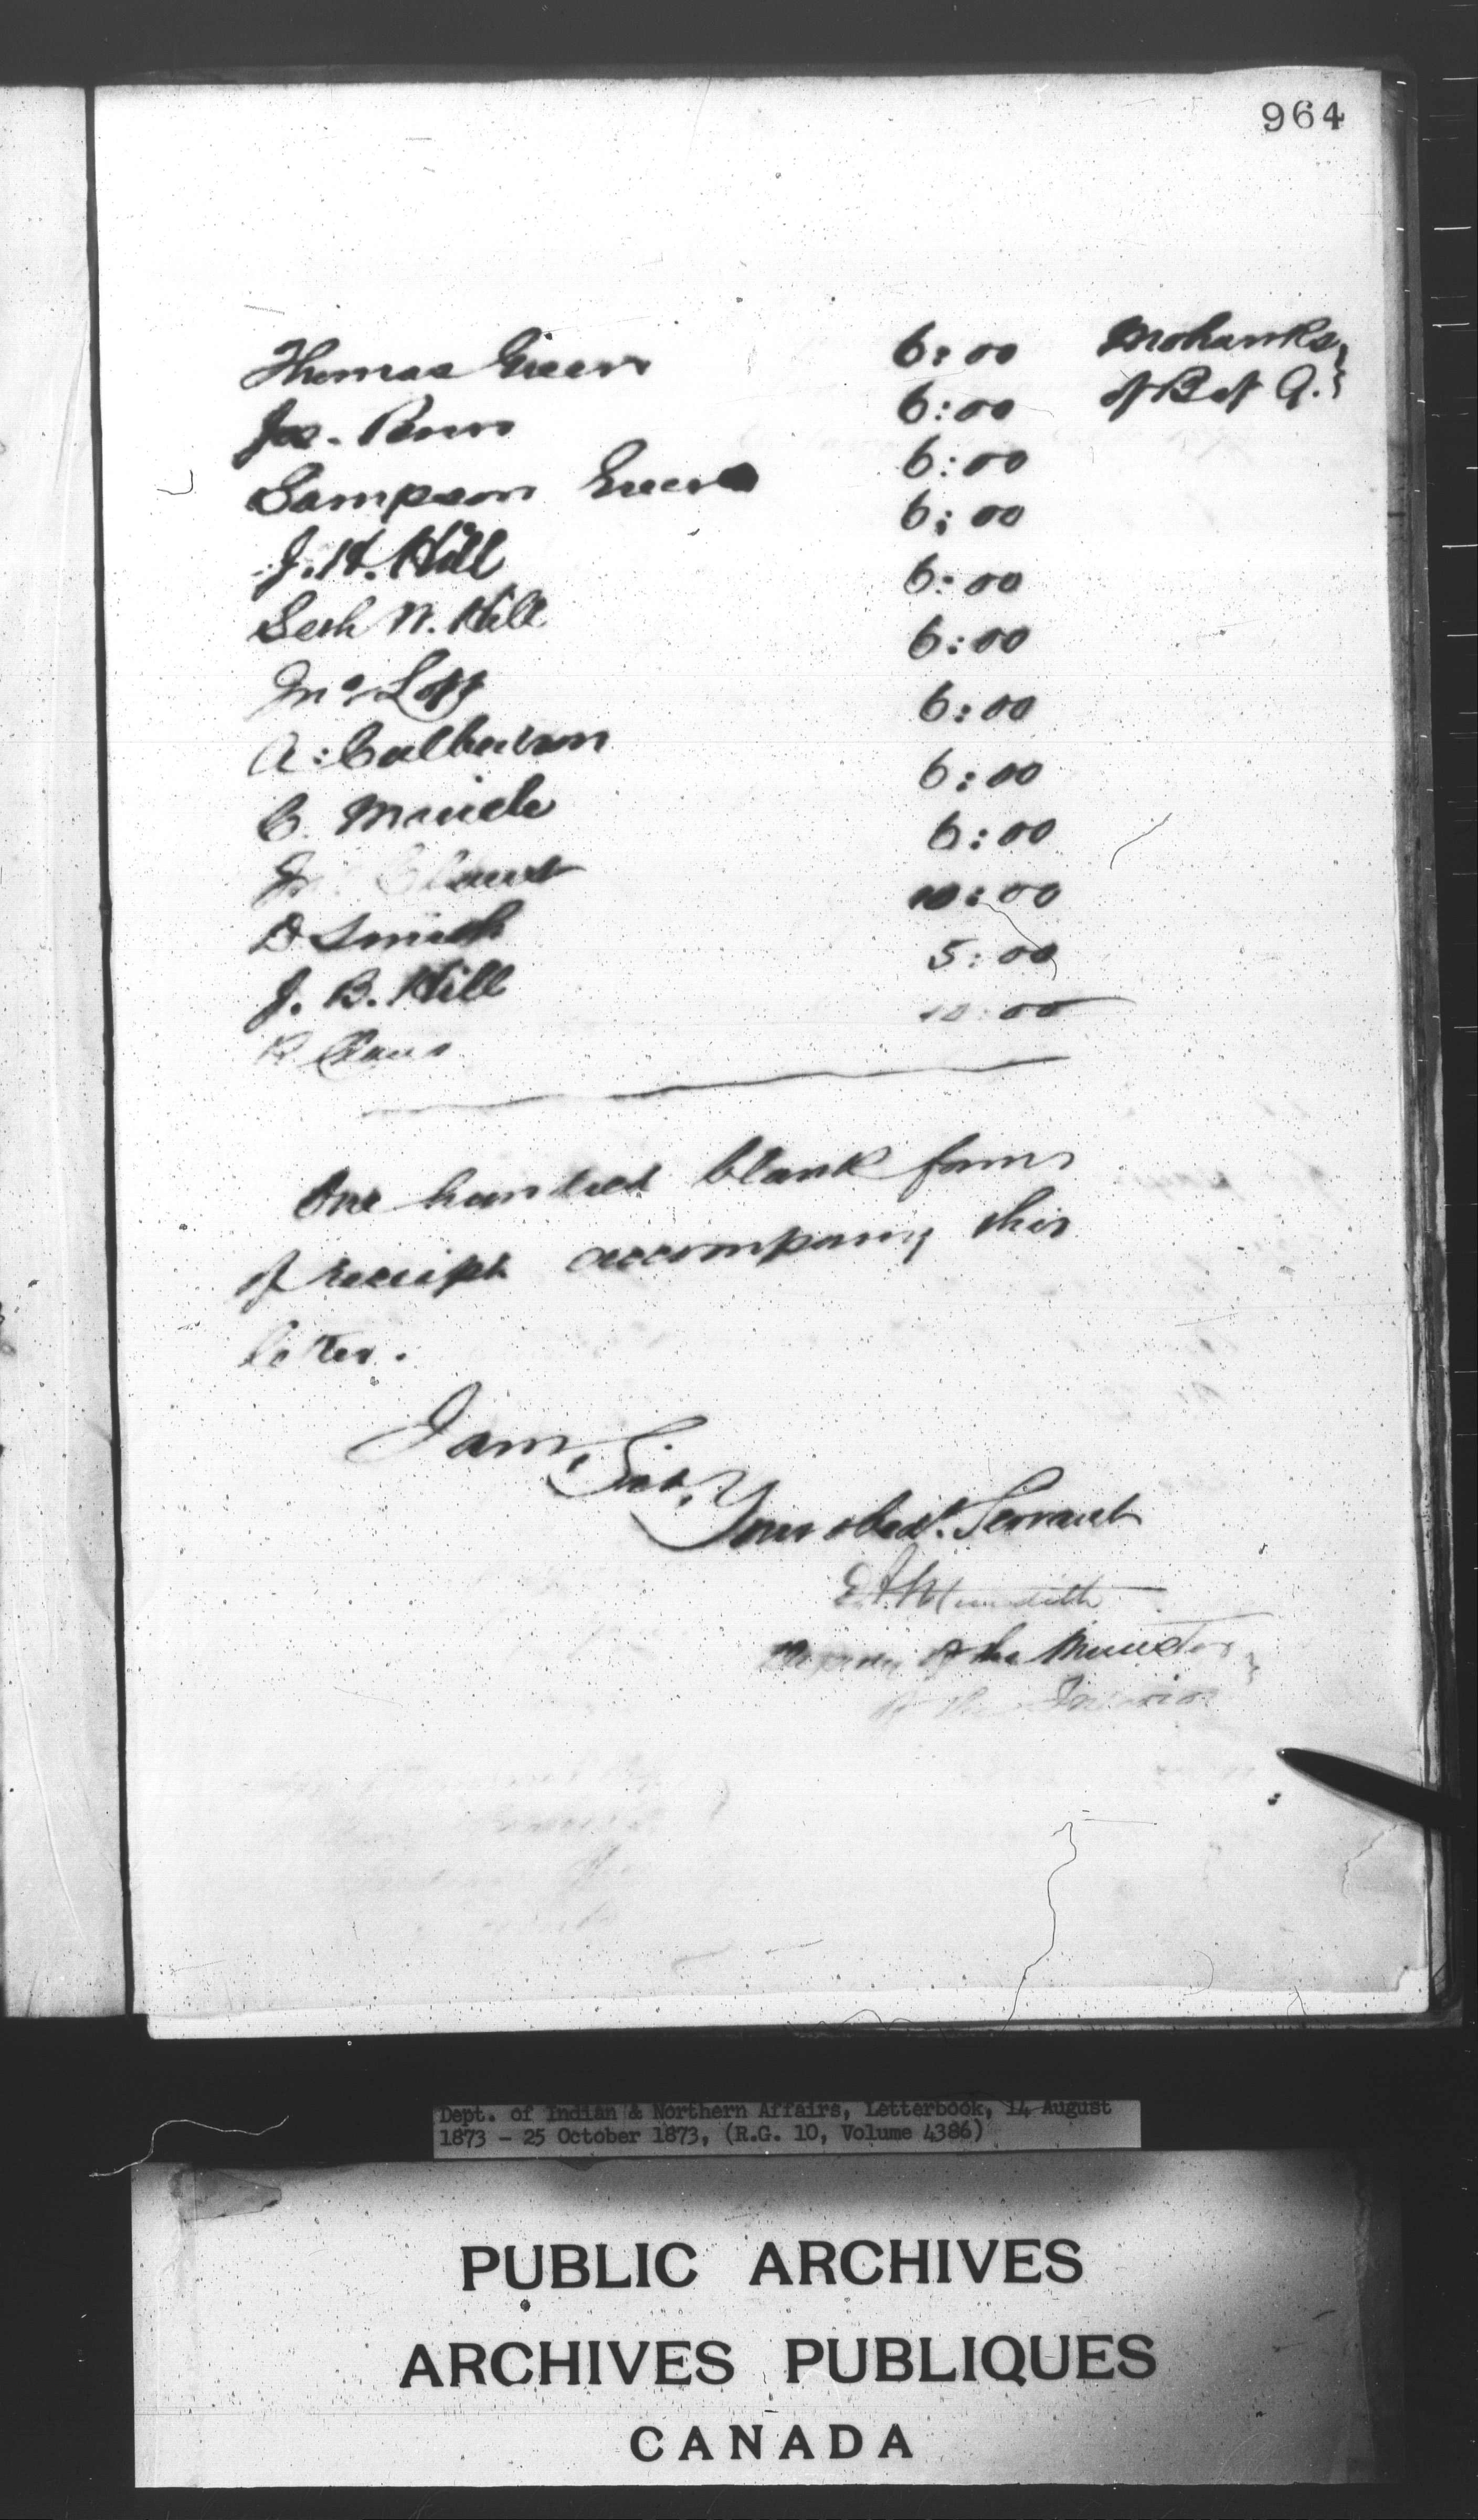 964
Thomas Green 6:00 Mohawks
Jos. Penn 6:00 of B of Q.
Sampson Green 6:00
J. H. Hill 6:00
Seth W. Hill 6:00
6:00
A: Culbertson 6:00
C. Maricle 6:00
6:00
D Smith 10:00
J. B. Hill 5:00
R Claus 10:00
One hundred blank forms
of receipt accompany this
letter.
I am,
Sir,
Your obedt. Servant
E A Meredith
Deputy of the Minister
of the Interior
Dept. of Indian & Northern Affairs, Letterbook, 14 August
1873 - 25 October 1873, (R.G. 10, Volume 4386)
PUBLIC ARCHIVES
ARCHIVES PUBLIQUES
CANADA